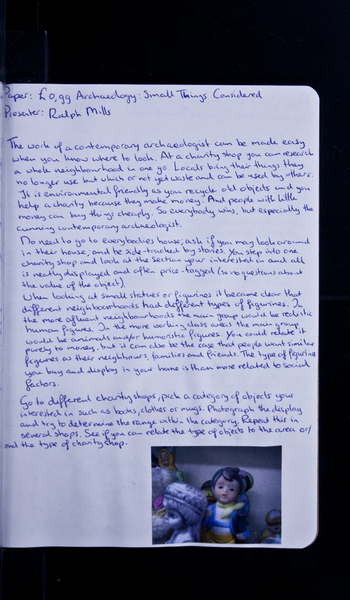 Paper: £0,99 Archaeology: Small Things Considered
Presenter: Ralph Mills
The work of a contemporary archaeologist can be made easy
when you know where to look. At a charity shop you can research
a whole neighbourhood in one go. Locals bring their things they
no longer use but which or not yet waste and can be used by others.
It is environmental friendly as you recycle old objects and you
help a charity because they make money. And people with little
money can buy things cheaply. So everybody wins, but especially the
cunning contemporary archaeologist.
No need to go to everybodies house, ask if you may look around
in their house, and be side-tracked by stories. You step into one
charity shop and look at the section your interested in and all
is neatly displayed and often price-tagged (so no questions about
the value of the object).
When looking at small statues or figurines it became clear that
different neighbourhoods had different types of figurines. In
the more affluent neighbourhoods the main group would be realistic
human figures. In the more working class areas the main group
would be animals and/or humoristic figures. You could relate it
purely to money, but it can also be the case that people want similar
figurines as their neighbours, families and friends. The type of figurine
you buy and display in your home is than more related to social
factors.
Go to different charity shops, pick a category of objects your
interested in such as books, clothes or mugs. Photograph the display
and try to determine the range within the category. Repeat this in
several shops. See if you can relate the type of objects to the area or/
and the type of charity shop.